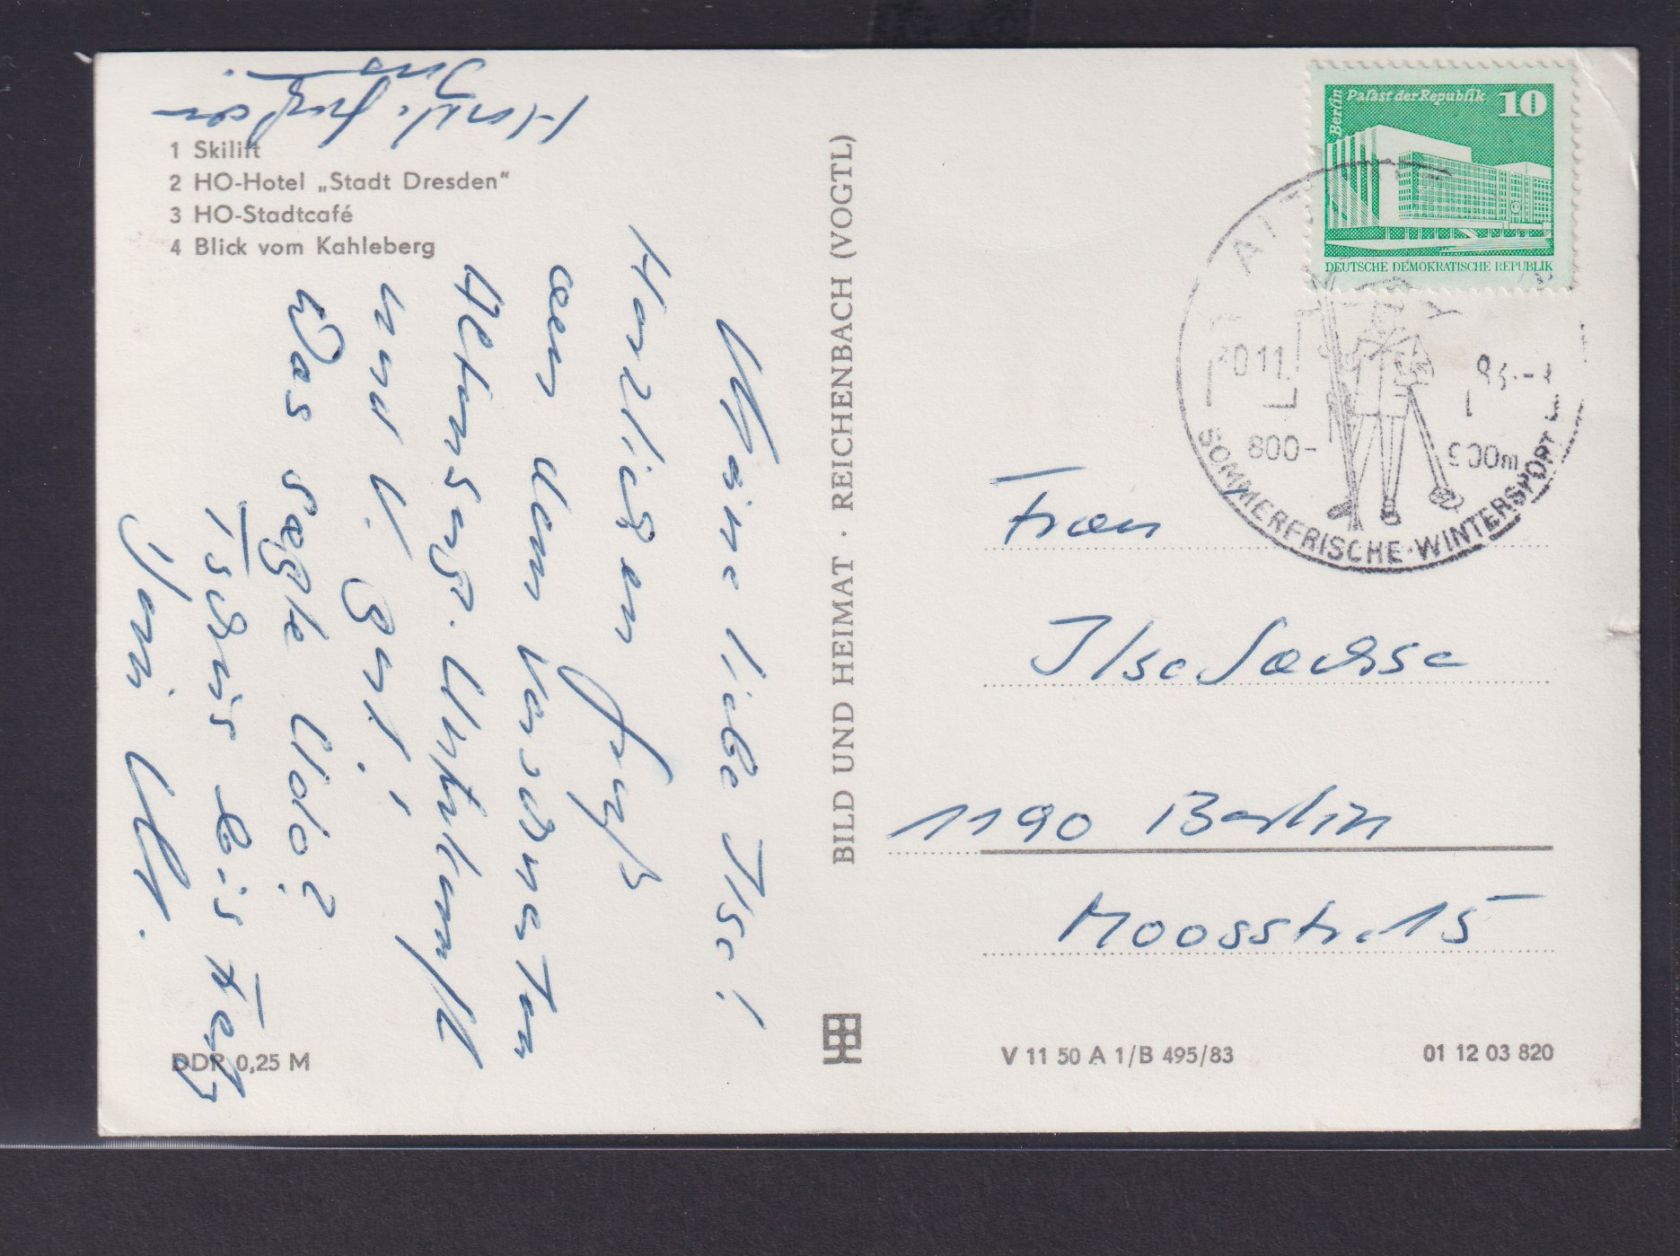 1 Skilift
2 HO-Hotel „Stadt Dresden“
3 HO-Stadtcafé
4 Blick vom Kahleberg
Meine liebe Ilse!
Herzlichen Gruß
aus dem verschneiten
Altenbg. Unterkunft
und V. gut!
Was sagte Udo?
Tschüs bis
DDR 0,25 M
BILD UND HEIMAT · REICHENBACH (VOGTL)
Berlin
Palast der Republik
10
DEUTSCHE DEMOKRATISCHE REPUBLIK
800-
900m
SOMMERFRISCHE·WINTERSPORT
Frau
Ilse Sachse
1190 Berlin
Moosstr. 15
V 11 50 A 1/B 495/83
01 12 03 820